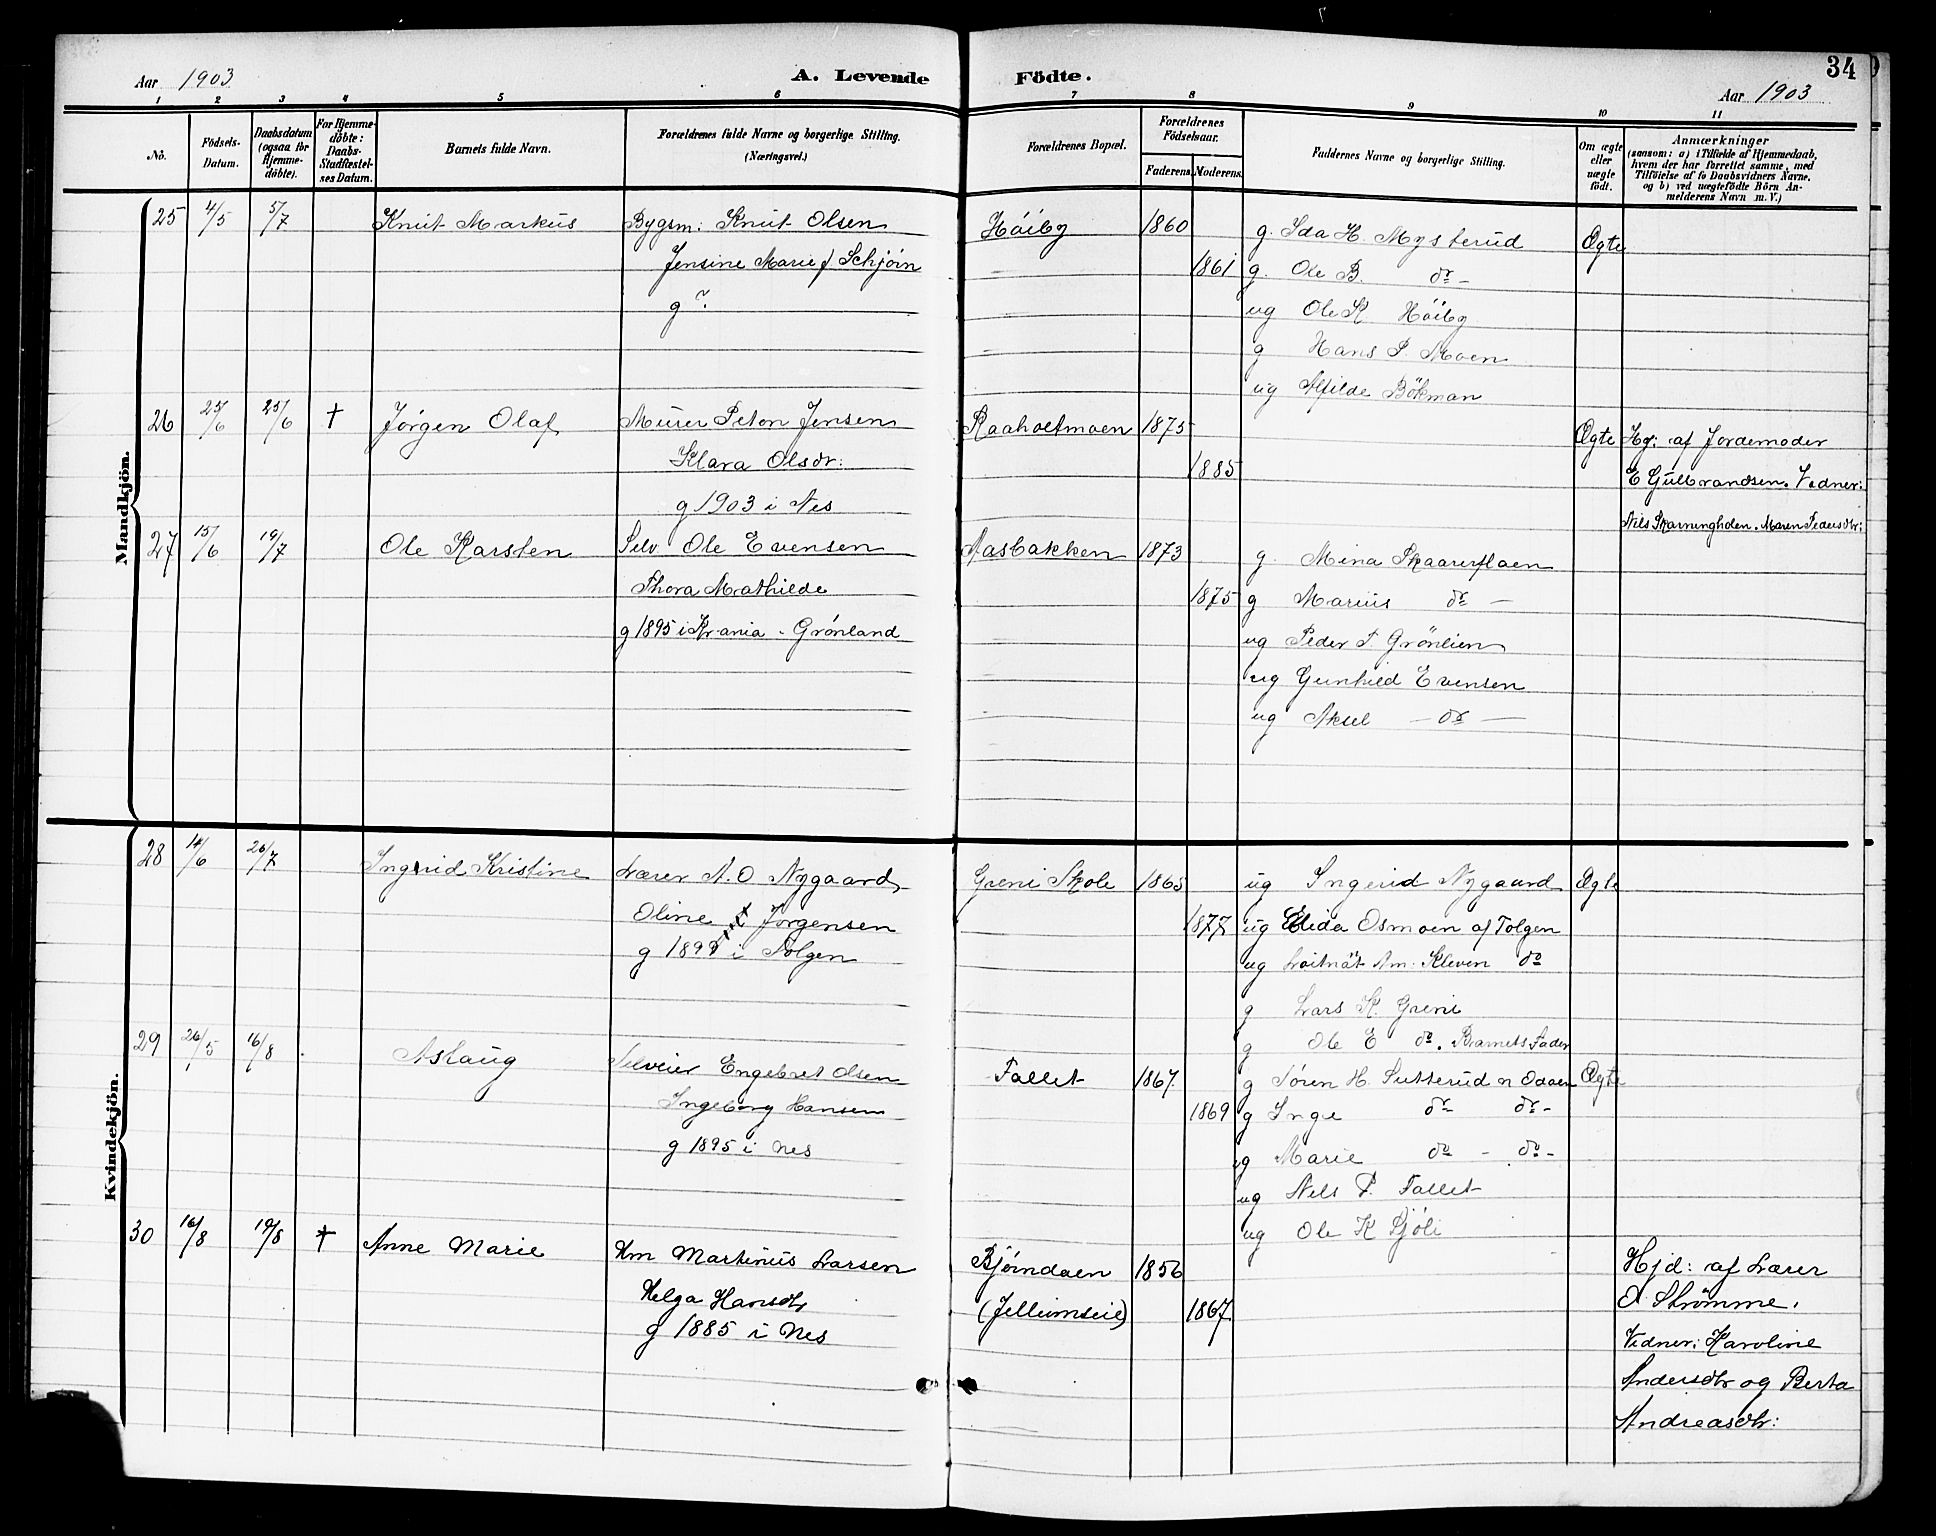 34
Aar 1903
A. Levende Födte.
Aar 1903
1 2 3 4 5 6 7 8 9 10 11
No.
Födsels-
Datum.
Daabsdatum
(ogsaa for
Hjemme-
döbte).
For Hjemme-
döbte:
Daabs-
Stadfæstel-
ses Datum.
Barnets fulde Navn.
Forældrenes fulde Navne og borgerlige Stilling.
(Næringsvei.)
Forældrenes Bopæl.
Forældrenes
Födselsaar.
Faderens. Moderens.
Faddernes Navne og borgerlige Stilling.
Om ægte
eller
uægte
født.
Anmærkninger
(saasom: a) i Tilfælde af Hjemmedaab,
hvem der har forrettet samme, med
Tilföielse af to Daabsvidners Navne,
og b) ved uægtefödte Börn An-
melderens Navn m. V.)
Mandkjön.
25 4/5 5/7 Knut Markus Bygsm: Knut Olsen Höiby 1860 g. Ida H. Mysterud Ægte
Jensine Marie f Schjörn 1861 g. Ole B. do -
g ?. ug Ole K Höiby
g Hans P. Moen
ug Alfilde Bökman
26 25/6 25/6 † Jörgen Olaf Murer Peton Jensen Raaholtmoen 1875 Ægte Hj: af Jordemoder
Klara Olsdr: 1885 E Gulbrandsen. Vidner:
g 1903 i Nes Nils Skarninghden. Maren Pedersdtr:
27 15/6 19/7 Ole Karsten Selv. Ole Evensen Aasbakken 1873 g. Mina Skaarerflaen
Thora Mathilde 1875 g Marius do -
g 1895 i Kr.ania - Grönland ug Peder P Grönlien
ug Gunhild Evensen
ug Aksel - do -
Kvindekjön.
28 14/6 26/7 Ingrid Kristine Lærer A. O Nygaard, Greni Skole 1865 ug Ingerid Nygaard Ægte
Oline Jörgensen 1877 ug Elida Osmoen af Tolgen
g 1899 i Tolgen ug Loitnät Am. Kleven do
g Lars K. Greni
g Ole E do. Barnets Fader
29 26/5 16/8 Aslaug Selveier Engebret Olsen Fallet 1867 g Sören H. Sutterud n Odaen Ægte
Ingeborg Hansen 1869 g Inge do do -
g 1895 i Nes ug Marie do - do -
ug Nils P. Fallet
ug Ole K Sjöli
30 16/8 19/8 † Anne Marie Hm Martinus Larsen Björndaen 1856 Hjd: af Lærer
Helga Hansdtr (Jellumseie) 1867 O Strömme.
g 1885 i Nes Vidner: Karoline
Andersdtr og Berta
Andreasdtr: